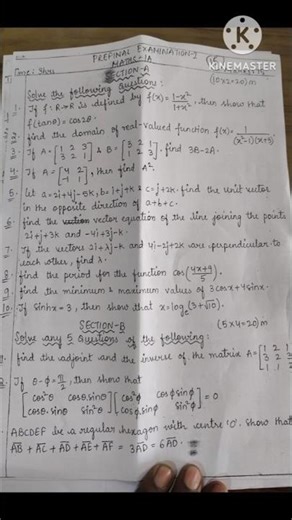 PREFINAL EXAMINATION-2
MATHS-1A
KINEMASTER
Time: 3hrs
SECTION-A
(10x2=20)m
I Solve the following Questions:
1. If f: R→R is defined by f(x) = 1-x²/1+x², then show that
f(tanθ) = cos2θ.
2. find the domain of real-valued function f(x) = 1/(x²-1)(x+3).
3. If A = [1 2 3; 3 2 1] & B = [3 2 1; 1 2 3]. find 3B-2A.
4. If then find A².
5. Let a=2i+4j-5k, b=i+j+k & c=j+2k. find the unit vector
in the opposite direction of a+b+c.
6. find the vector equation of the line joining the points
2i+j+3k and -4i+3j-k.
7. If the vectors 2i+λj-k and 4i-2j+2k are perpendicular to
each other, find λ.
8. find the period for the function cos(4x+9/5).
9. find the minimum & maximum values of 3cosx+4sinx.
10. If sinhx=3, then show that x=log (3+√10).
SECTION-B
(5x4=20)m
Solve any 5 Questions of the following:
find the adjoint and the inverse of the matrix A = [1 2 1; 3 2 3; 1 1 2]
If θ-φ=π/2, then show that
[cos²θ cosθ.sinθ; cosθ.sinθ sin²θ] [cos²φ cosφsinφ; cosφsinφ sin²φ] = 0
ABCDEF be a regular hexagon with centre 'O'. Show that
AB + AC + AD + AE + AF = 3AD = 6AO.